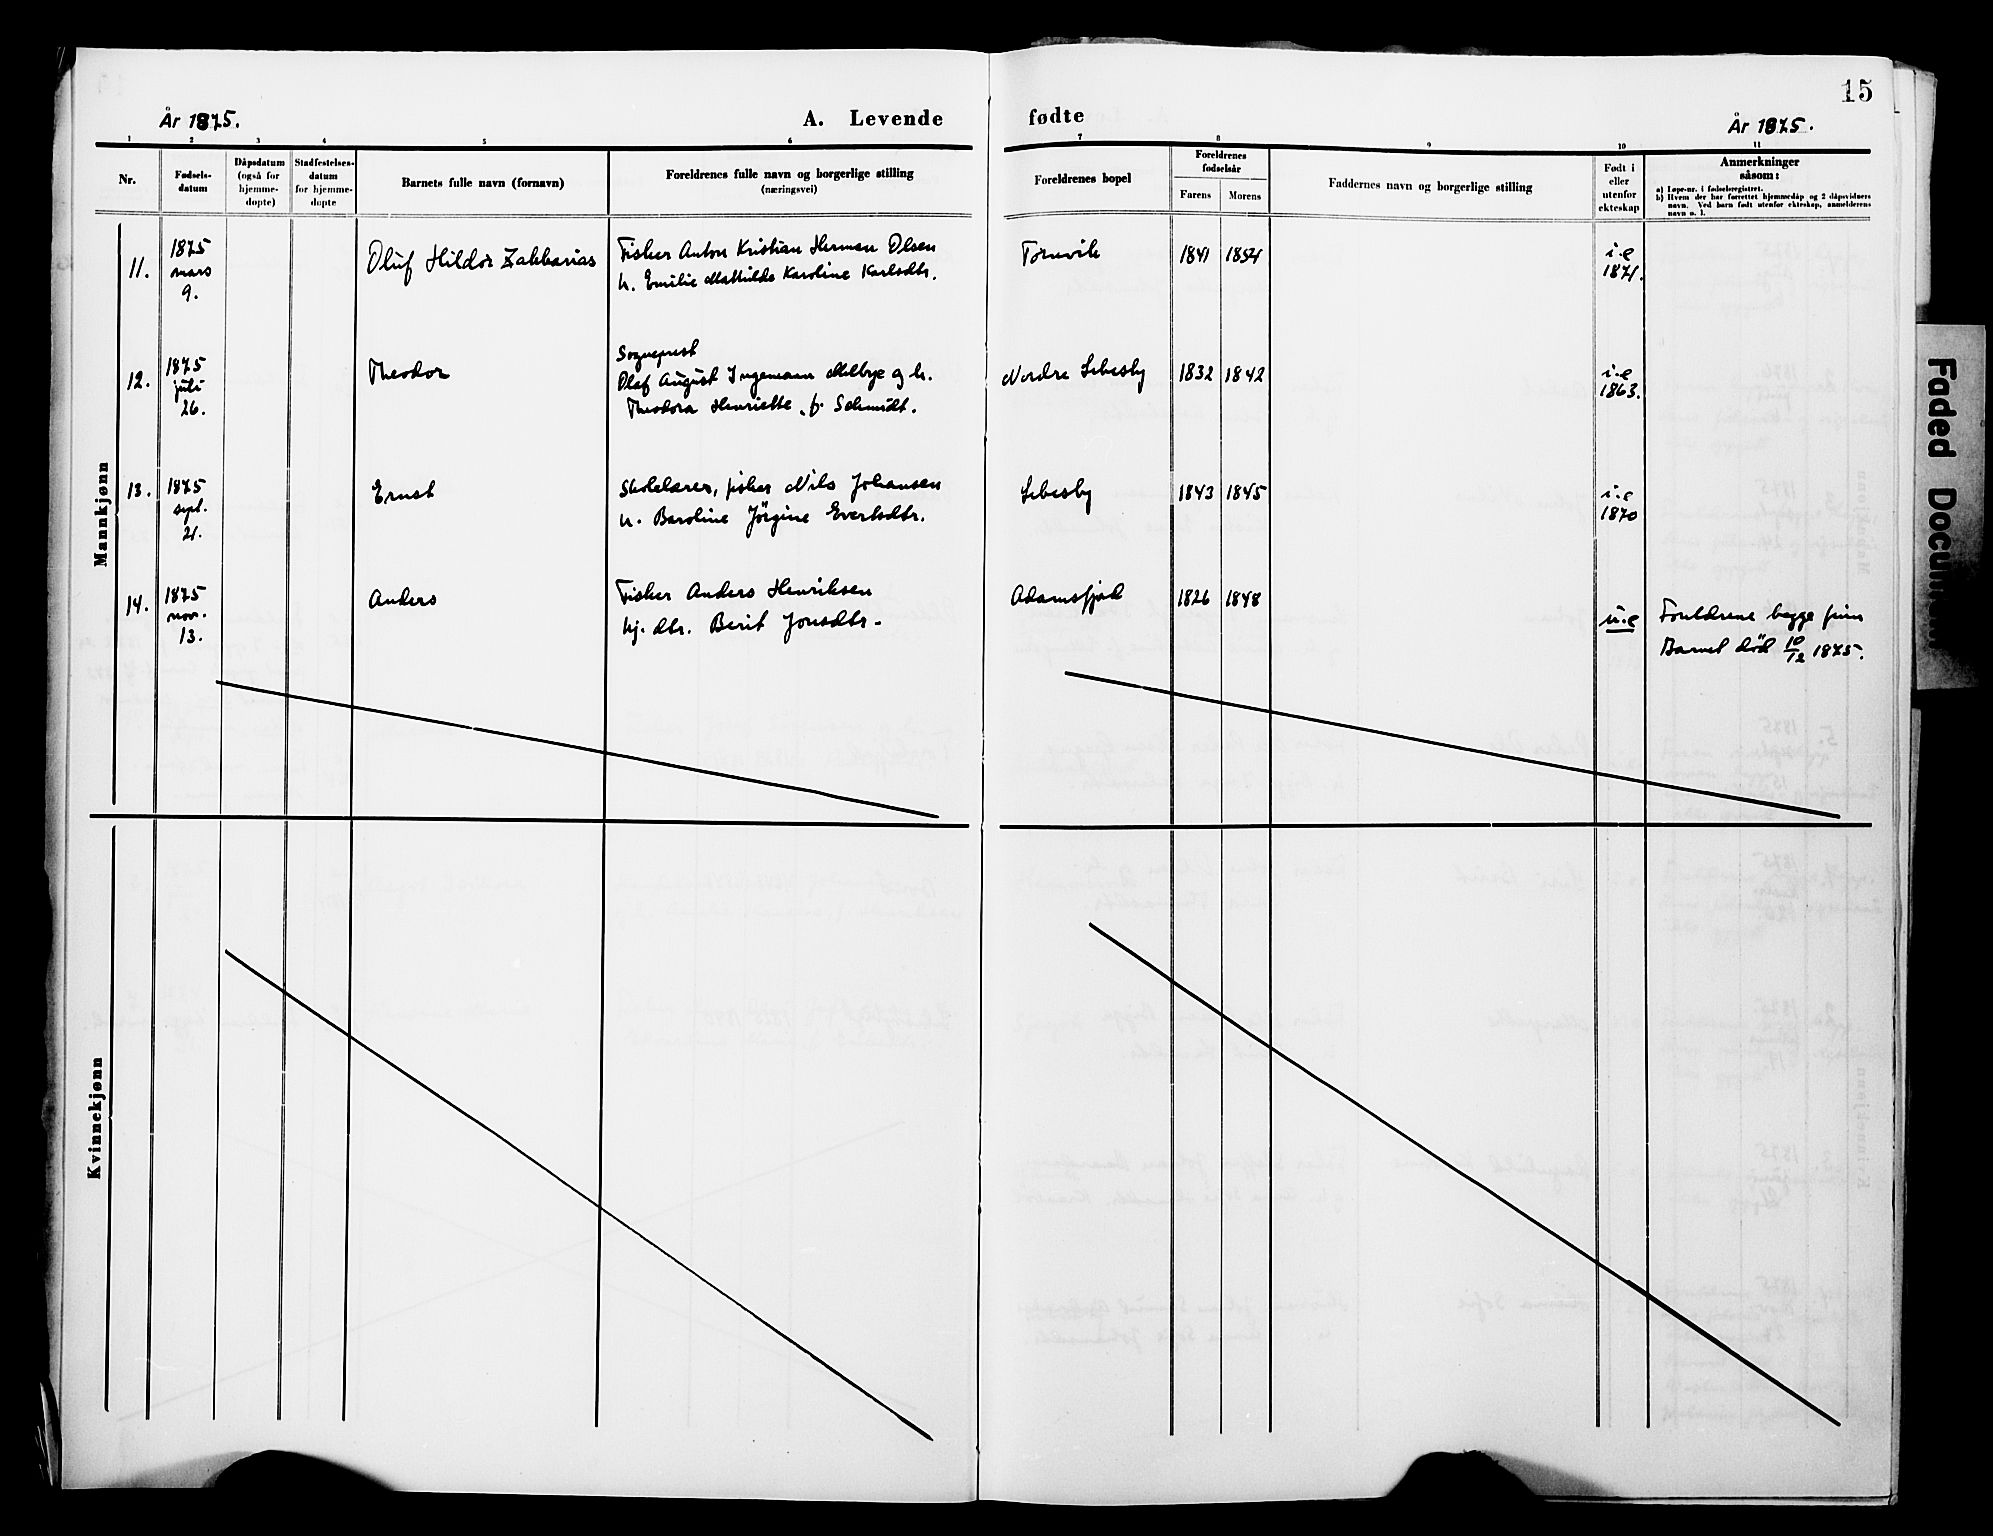 15
År 1875.
A. Levende
fødte
År 1875.
1 2 3 4 5 6 7 8 9 10 11
Nr.
Fødsels-
datum
Dåpsdatum
(også for
hjemme-
døpte)
Stadfestelses-
datum
for hjemme-
døpte
Barnets fulle navn (fornavn)
Foreldrenes fulle navn og borgerlige stilling
(næringsvei)
Foreldrenes bopel
Foreldrenes
fødselsår
Farens
Morens
Faddernes navn og borgerlige stilling
Født i
eller
utenfor
ekteskap
Anmerkninger
såsom:
a) Løpe-nr. i fødselsregistret.
b) Hvem der har forrettet hjemmedåp og 2 dåpsvidners
navn. Ved barn født utenfor ekteskap, anmelderens
navn o. l.
Mannkjønn
11.
1875
mars
9.
Oluf Hildor Zakkarias
Fisker Anton Kristian Herman Olsen
h. Emilie Mathilde Karoline Karlsdtr.
Tømvik
1841 1854
i.e
1871.
12.
1875
juli
26.
Theodor
Sogneprest
Olaf August Ingemann Melbye og h.
Theodora Henriette f. Schmidt.
Nordre Lebesby
1832 1842
i.e
1863.
13.
1875
sept.
21.
Ernst
Skolelærer, fisker Nils Johansen
h. Baroline Jörgine Evertsdtr.
Lebesby
1843 1845
i.e
1870
14.
1875
nov.
13.
Anders
Fisker Anders Henriksen
hj. dtr. Berit Jonsdtr.
Adamsfjord
1826 1848
u.e
Foreldrene begge finn
Barnet död 10/12 1875.
Kvinnekjønn
Faded Document